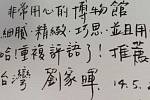 非常用心的博物館
細膩、精緻、巧思、並且用
哈!重複許諾了!推薦
台灣 劉家暉 14.5.